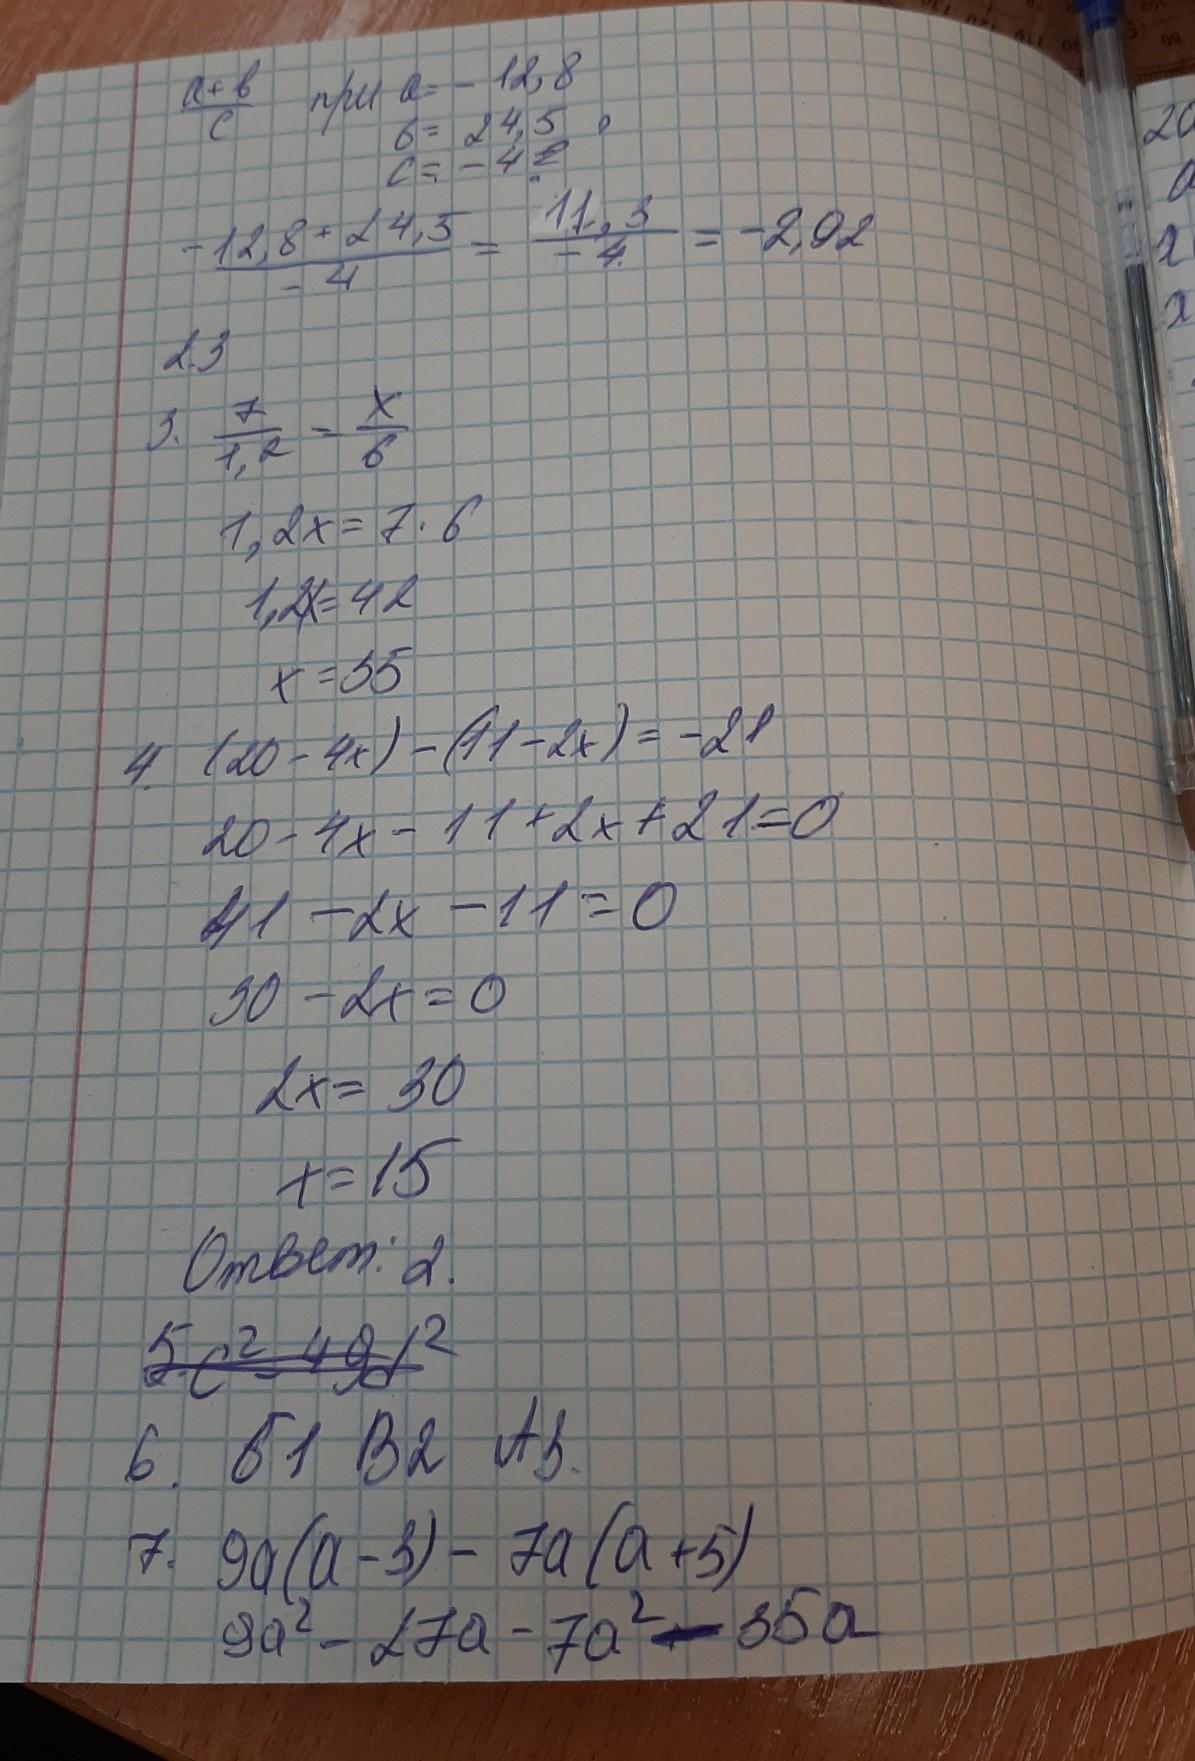 a+b
c
при a= -12,8
b= 24,5
c= -4
-12,8+24,5 / -4 = 11,3 / -4 = -2,92
2.3
3. 7/1,2 = x/6
1,2x=7·6
1,2x=42
x=35
4. (20-4x)-(11-2x)=-21
20-4x-11+2x+21=0
41-2x-11=0
30-2x=0
2x=30
x=15
Ответ: 2.
5. c²-49d²
6. Б1 В2 А3.
7. 9a(a-3)-7a(a+5)
9a²-27a-7a²-35a